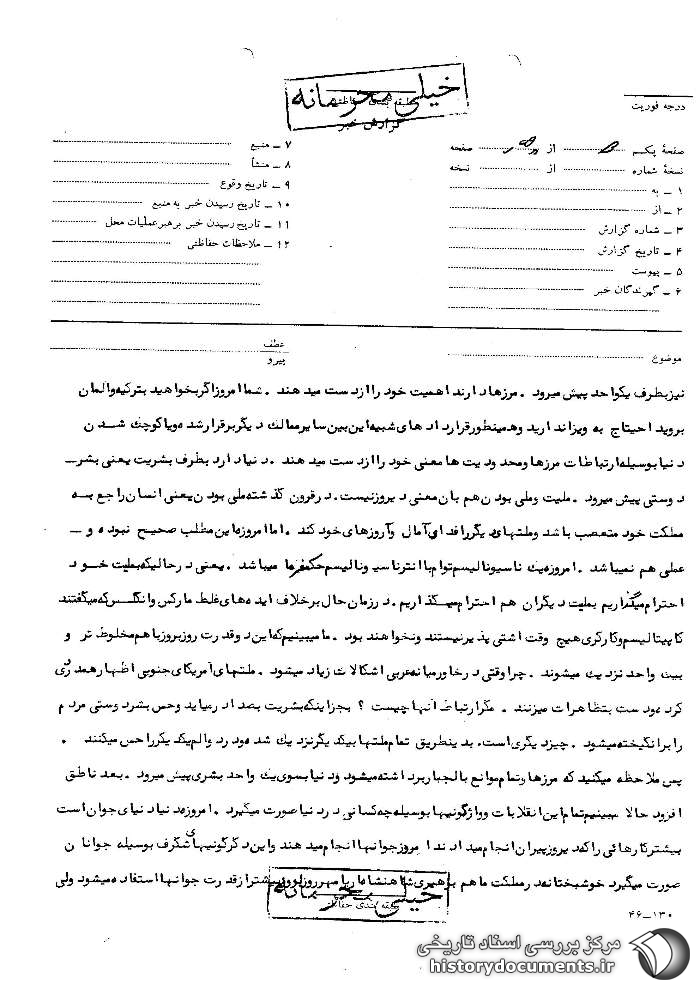 خیلی محرمانه
گزارش خبر
درجه فوریت
صفحهٔ یکم از صفحه
نسخهٔ شماره از نسخه
۱ ـ به
۲ ـ از
۳ ـ شماره گزارش
۴ ـ تاریخ گزارش
۵ ـ پیوست
۶ ـ گیرندگان خبر
۷ ـ منبع
۸ ـ منشأ
۹ ـ تاریخ وقوع
۱۰ ـ تاریخ رسیدن خبر به منبع
۱۱ ـ تاریخ رسیدن خبر برهبرعملیات محل
۱۲ ـ ملاحظات حفاظتی
موضوع
عطف
پیرو
نیزبطرف یکواحد پیش میرود . مرزها دارند اهمیت خود را ازدست میدهند . شما امروز اگر بخواهید بترکیه والمان
بروید احتیاج به ویزا ندارید وهمینطور قرارداد های شبیه این بین سایر ممالک دیگر برقرار شده و با کوچک شدن
دنیا بوسیله ارتباطات مرزها ومحدودیت ها معنی خود را ازدست میدهند . دنیا دارد بطرف بشریت یعنی بشر ـ
دوستی پیش میرود . ملیت وملی بودن هم بان معنی دیروز نیست . در قرون گذشته ملی بودن یعنی انسان راجع به
مملکت خود متعصب باشد وملتهای دیگر را فدای آمال وآرزوهای خود کند . اما امروزه این مطلب صحیح نبوده و ـ
عملی هم نمیباشد . امروزه یک ناسیونالیسم توام با انترناسیونالیسم حکمفرما میباشد . یعنی در حالیکه بملیت خود
احترام میگذاریم بملیت دیگران هم احترام میگذاریم . در زمان حال برخلاف ایده های غلط مارکس وانگلس که میگفتند
کاپیتالیسم و کارگری هیچ وقت اشتی پذیر نیستند ونخواهند بود . ما میبینیم که این دو قدرت روز بروز با هم مخلوط تر و
بیک واحد نزدیک میشوند . چرا وقتی در خاورمیانه عربی اشکالات زیاد میشود . ملتهای آمریکای جنوبی اظهار همدردی
کرده ودست بتظاهرات میزنند . مگر ارتباط آنها چیست ؟ بجز اینکه بشریت بصدا درمیاید وحس بشردوستی مردم
را برانگیخته میشود . چیز دیگری است . بدینطریق تمام ملتها بیکدیگر نزدیک شده ودرد والم یکدیگر را حس میکنند .
پس ملاحظه میکنید که مرزها وتمام موانع بالجبار برداشته میشود ودنیا بسوی یک واحد بشری پیش میرود . بعد ناطق
افزود حالا ببینیم تمام این انقلابات وواژگونیها بوسیله چه کسانی در دنیا صورت میگیرد . امروزه دنیا دنیای جوان است
بیشتر کارهائی را که دیروز پیران انجام میدادند امروز جوانها انجام میدهند واین دگرگونیهای شگرف بوسیله جوانان
صورت میگیرد خوشبختانه در مملکت ما هم برهبری شاهنشاه آریامهر روز بروز بیشتر از قدرت جوانها استفاده میشود ولی
خیلی محرمانه
طبقه بندی حفاظتی
۴۶ـ۱۳۰
مرکز بررسی اسناد تاریخی
historydocuments.ir